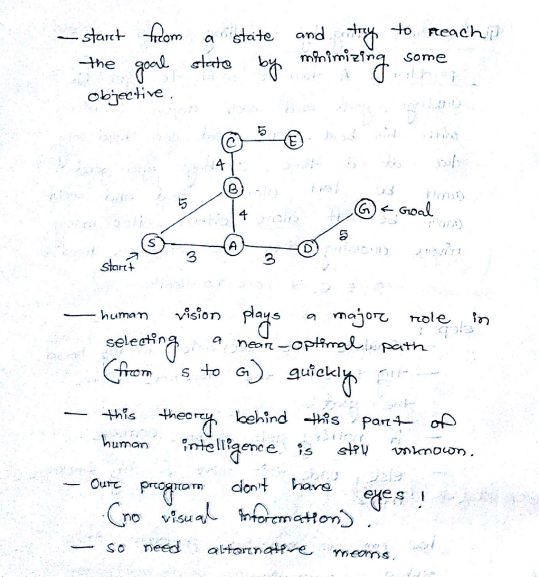 — start from a state and try to reach
the goal state by minimizing some
objective.
C 5 E
4
B
5 4 G ← Goal
S A D 5
start 3 3
— human vision plays a major role in
selecting a near-optimal path
(from S to G) quickly
— this theory behind this part of
human intelligence is still unknown.
— Our program don't have eyes!
(no visual information).
— so need alternative means.